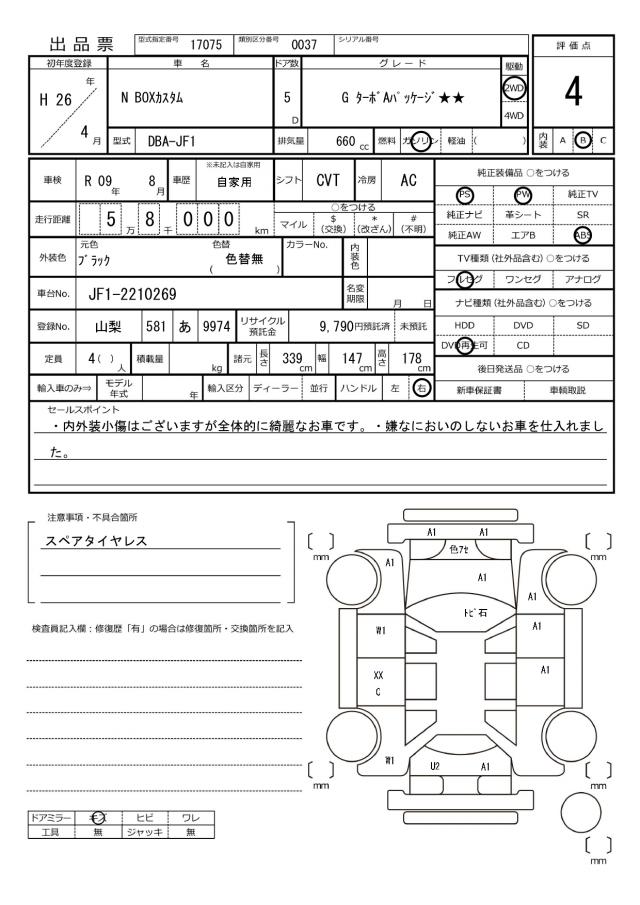 出品票 型式指定番号 17075 類別区分番号 0037 シリアル番号
評価点
4
初年度登録 車名 ドア数 グレード 駆動
H 26 年 4 月
N BOXカスタム
5 D
G ターボAパッケージ★★
2WD
4WD
型式 DBA-JF1 排気量 660 cc 燃料 ガソリン 軽油 ( )
内装 A B C
車検 R 09 年 8 月 車歴 ※未記入は自家用 自家用 シフト CVT 冷房 AC
走行距離 5 万 8 千 0 0 0 km
○をつける
マイル $(交換) *(改ざん) #(不明)
外装色 元色 ブラック 色替 ( 色替無 ) カラーNo. 内装色
車台No. JF1-2210269 名変期限 月 日
登録No. 山梨 581 あ 9974 リサイクル預託金 9,790円預託済 未預託
定員 4( ) 人 積載量 kg 諸元 長さ 339 cm 幅 147 cm 高さ 178 cm
輸入車のみ⇒ モデル年式 年 輸入区分 ディーラー 並行 ハンドル 左 右
純正装備品 ○をつける
PS PW 純正TV
純正ナビ 革シート SR
純正AW エアB ABS
TV種類 (社外品含む) ○をつける
フルセグ ワンセグ アナログ
ナビ種類 (社外品含む) ○をつける
HDD DVD SD
DVD再生可 CD
後日発送品 ○をつける
新車保証書 車輌取説
セールスポイント
・内外装小傷はございますが全体的に綺麗なお車です。・嫌なにおいのしないお車を仕入れまし
た。
注意事項・不具合箇所
スペアタイヤレス
検査員記入欄：修復歴「有」の場合は修復箇所・交換箇所を記入
ドアミラー キズ ヒビ ワレ
工具 無 ジャッキ 無
A1 A1
色ｱｾ
A1
A1
A1
ﾄﾋﾞ石
W1
A1
XX
C
A1
W1
U2 A1
mm
mm
mm
mm
mm